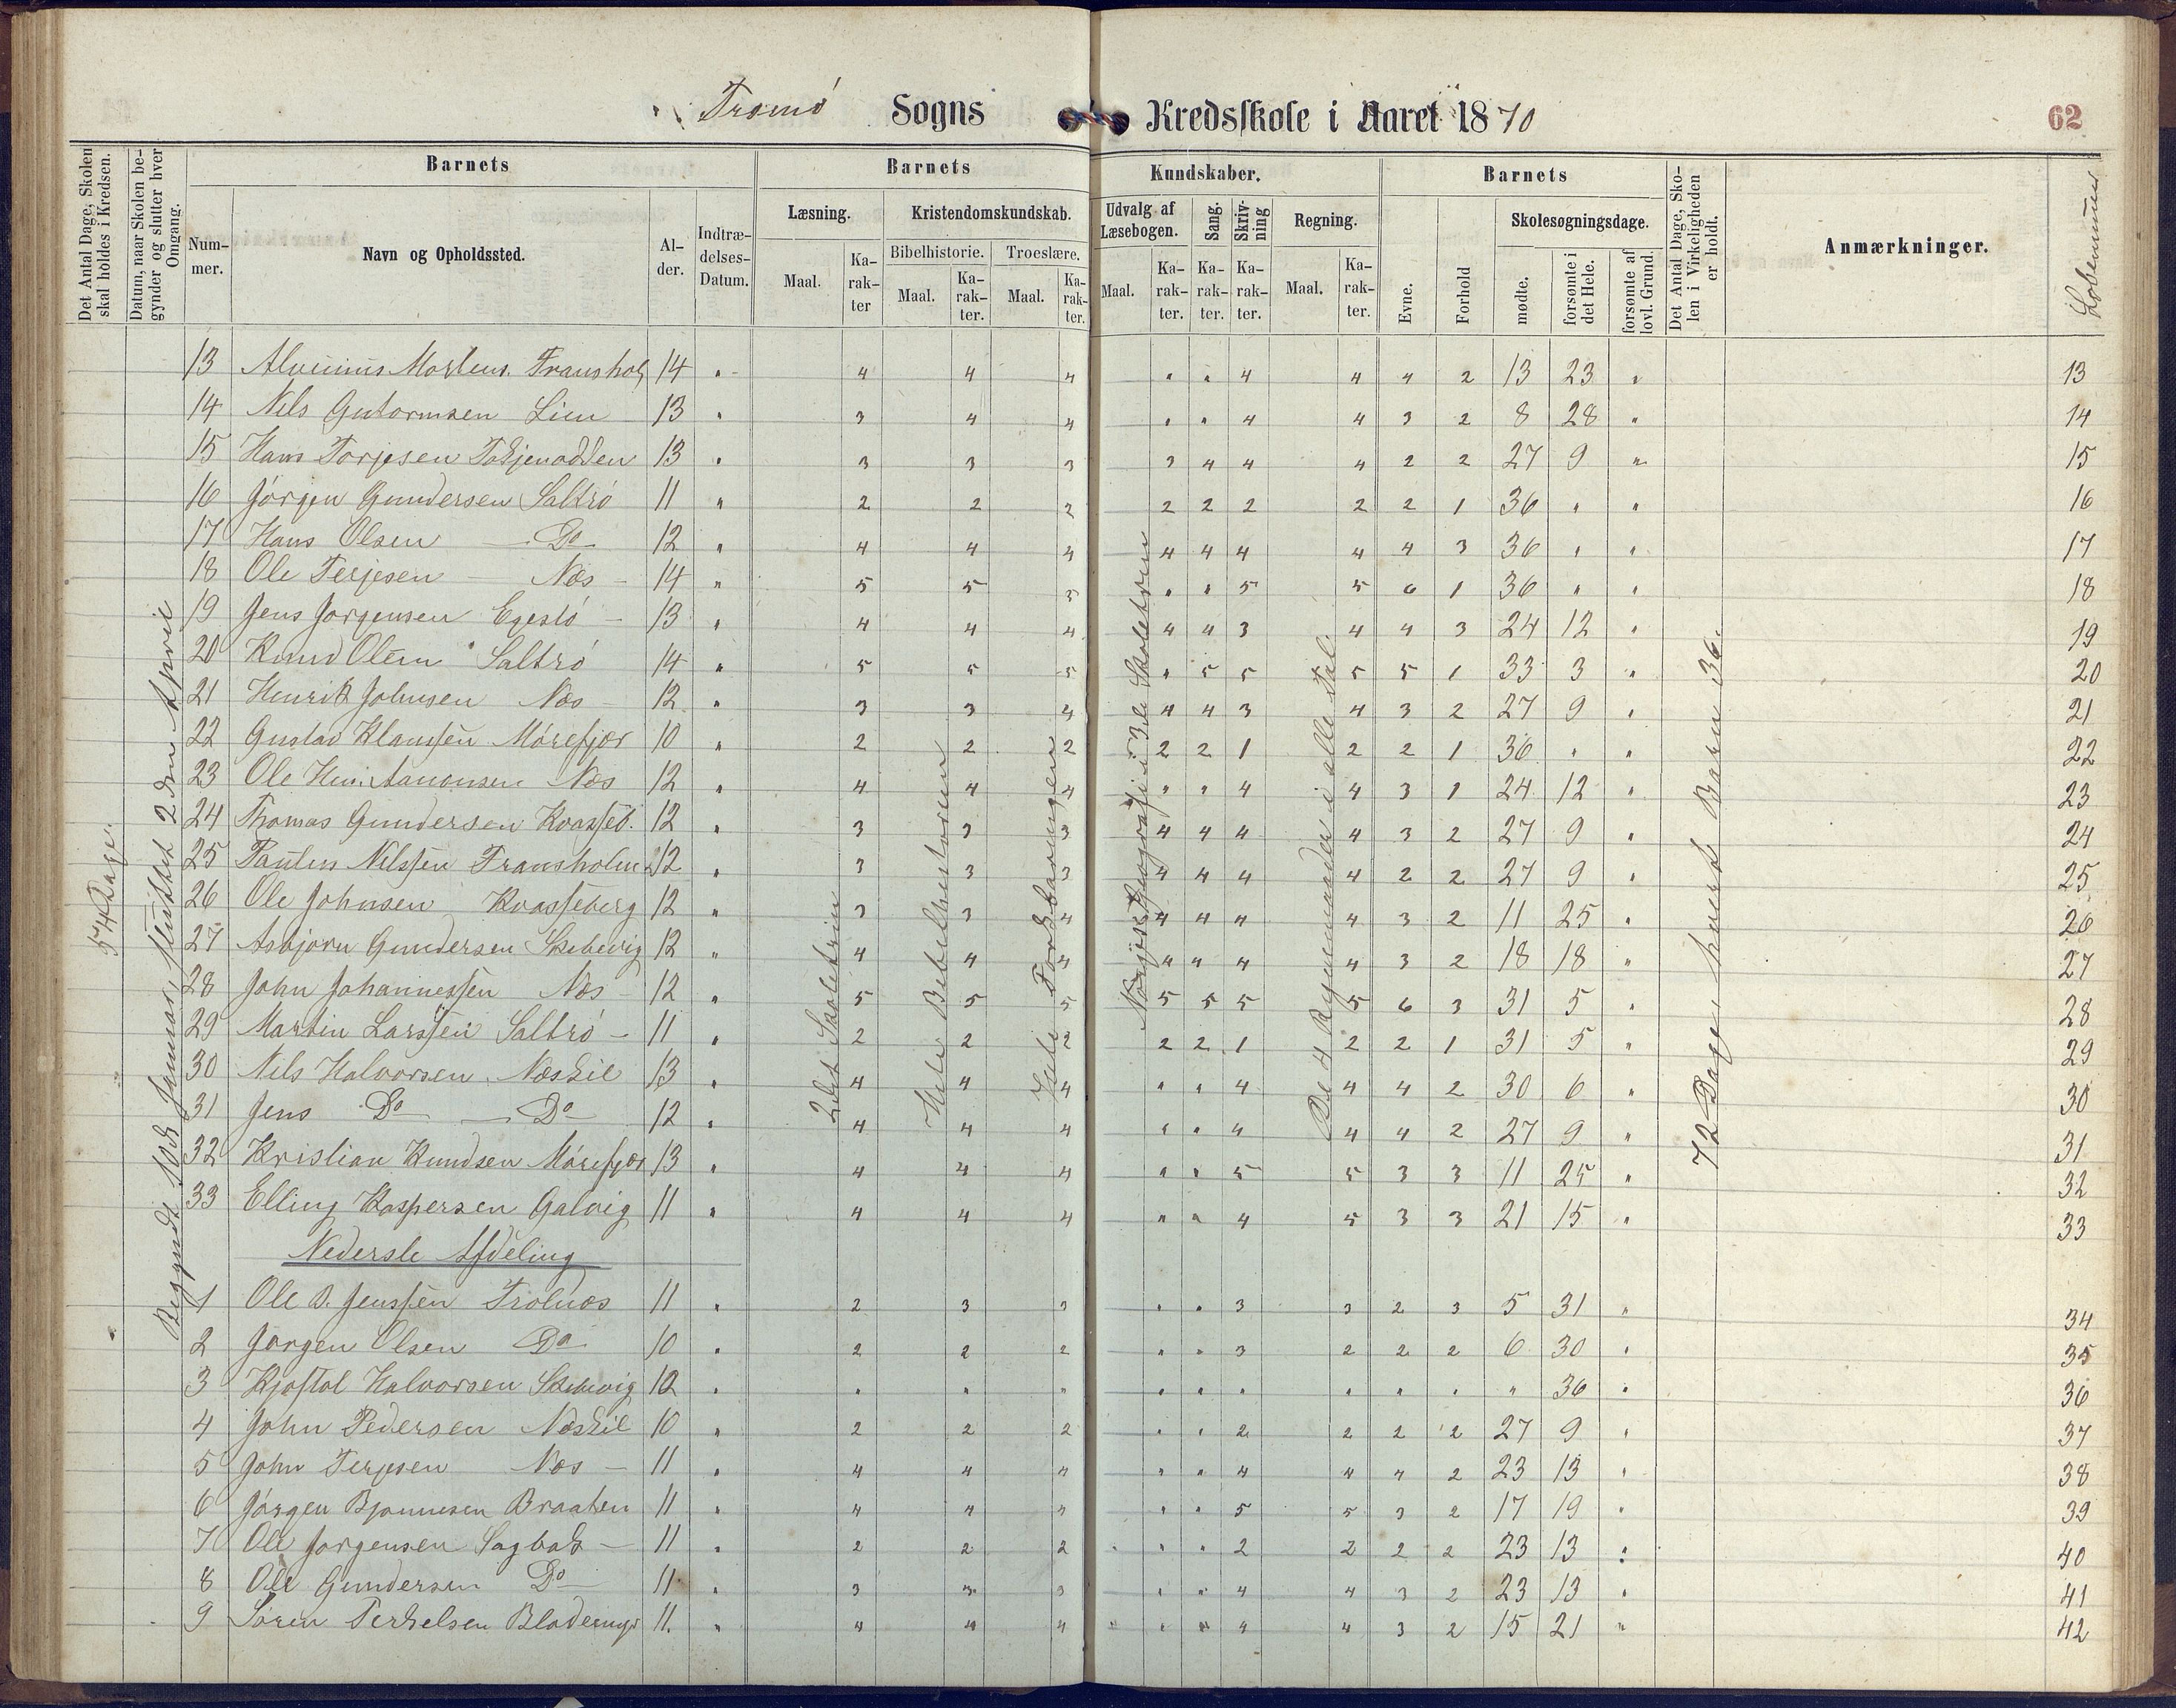 Tromø Sogns Kredsskole i Aaret 1870
62
Det Antal Dage, Skolen skal holdes i Kredsen.
Datum, naar Skolen begynder og slutter hver Omgang.
Barnets
Nummer.
Navn og Opholdssted.
Alder.
Indtrædelses-Datum.
Barnets Kundskaber.
Læsning.
Maal.
Karakter
Kristendomskundskab.
Bibelhistorie.
Maal.
Karakter.
Troeslære.
Maal.
Karakter.
Udvalg af Læsebogen.
Maal.
Karakter.
Sang.
Karakter.
Skrivning
Karakter.
Regning.
Maal.
Karakter.
Barnets
Evne.
Forhold
Skolesøgningsdage.
mødte.
forsømte i det Hele.
forsømte af lovl. Grund.
Det Antal Dage, Skolen i Virkeligheden er holdt.
Anmærkninger.
Løbenummer
54 Dage.
Begyndt 10de Januar, sluttet 2den April
2det Skoletrin
Hele Bibelhistorien
Hele Forklaringen
Norges Geografi i 3de Skoletrin
De 4 Regnemaader i alle Tal.
72 Dage, hvert Barn 36.
13 Alvinius Mortens. Fransholm 14 " 4 4 4 " " 4 4 4 2 13 23 " 13
14 Nils Gutormsen Lien 13 " 3 4 4 " " 4 4 3 2 8 28 " 14
15 Hans Torjesen Tokjenodden 13 " 3 3 3 3 4 4 4 2 2 27 9 " 15
16 Jørgen Gundersen Saltrø 11 " 2 2 2 2 2 2 2 2 1 36 " " 16
17 Hans Olsen Do 12 " 4 4 4 4 4 4 4 4 3 36 " " 17
18 Ole Terjesen Næs 14 " 5 5 5 " " 5 5 6 1 36 " " 18
19 Jens Jørgensen Egeslø 13 " 4 4 4 4 4 3 4 4 3 24 12 " 19
20 Knud Olsen Saltrø 14 " 5 5 5 " 5 5 5 5 1 33 3 " 20
21 Henrik Johnsen Næs 12 " 3 3 4 4 4 3 4 3 2 27 9 " 21
22 Gustav Klaussen Mørefjær 10 " 2 2 2 2 2 1 2 2 1 36 " " 22
23 Ole Næs 12 " 4 4 4 " " 4 4 3 1 24 12 " 23
24 Thomas Gundersen Kvasseb. 12 " 3 3 3 4 4 4 4 3 2 27 9 " 24
25 Paulus Nilssen Fransholm 12 " 3 3 3 4 4 4 4 2 2 27 9 " 25
26 Ole Johnsen Kvasseberg 12 " 3 3 4 4 4 4 4 3 2 11 25 " 26
27 Asbjørn Gundersen Skibevig 12 " 4 4 4 4 4 4 4 3 2 18 18 " 27
28 John Johannessen Næs 12 " 5 5 5 5 5 5 5 6 3 31 5 " 28
29 Martin Larssen Saltrø 11 " 2 2 2 2 2 1 2 2 1 31 5 " 29
30 Nils Halvorsen Næskil 13 " 4 4 4 " " 4 4 4 2 30 6 " 30
31 Jens Do Do 12 " 4 4 4 " " 4 4 4 2 27 9 " 31
32 Kristian Knudsen Mørefjær 13 " 4 4 4 " " 5 5 3 3 11 25 " 32
33 Elling Kaspersen Galvig 11 " 4 4 4 " " 4 5 3 3 21 15 " 33
Nederste Afdeling
1 Ole B. Jenssen Trolnæs 11 " 2 3 3 " " 3 3 2 3 5 31 " 34
2 Jørgen Olsen Do 10 " 2 2 2 " " 3 2 2 2 6 30 " 35
3 Kjøstol Halvorsen Skibevig 12 " " " " " " " " " " " 36 " 36
4 John Pedersen Næskil 10 " 2 2 2 " " 2 2 2 2 27 9 " 37
5 John Terjesen Næs 11 " 4 4 4 " " 4 4 4 2 23 13 " 38
6 Jørgen Bjønnesen Braaten 11 " 4 4 4 " " 5 5 3 2 17 19 " 39
7 Ole Jørgensen Sagbak 11 " 2 2 2 " " 2 2 2 2 23 13 " 40
8 Ole Gundersen Do 11 " 3 3 3 " " 4 4 3 2 23 13 " 41
9 Søren Terkelsen Blødemyr 11. " 4 4 4 " " 4 4 3 2 15 21 " 42